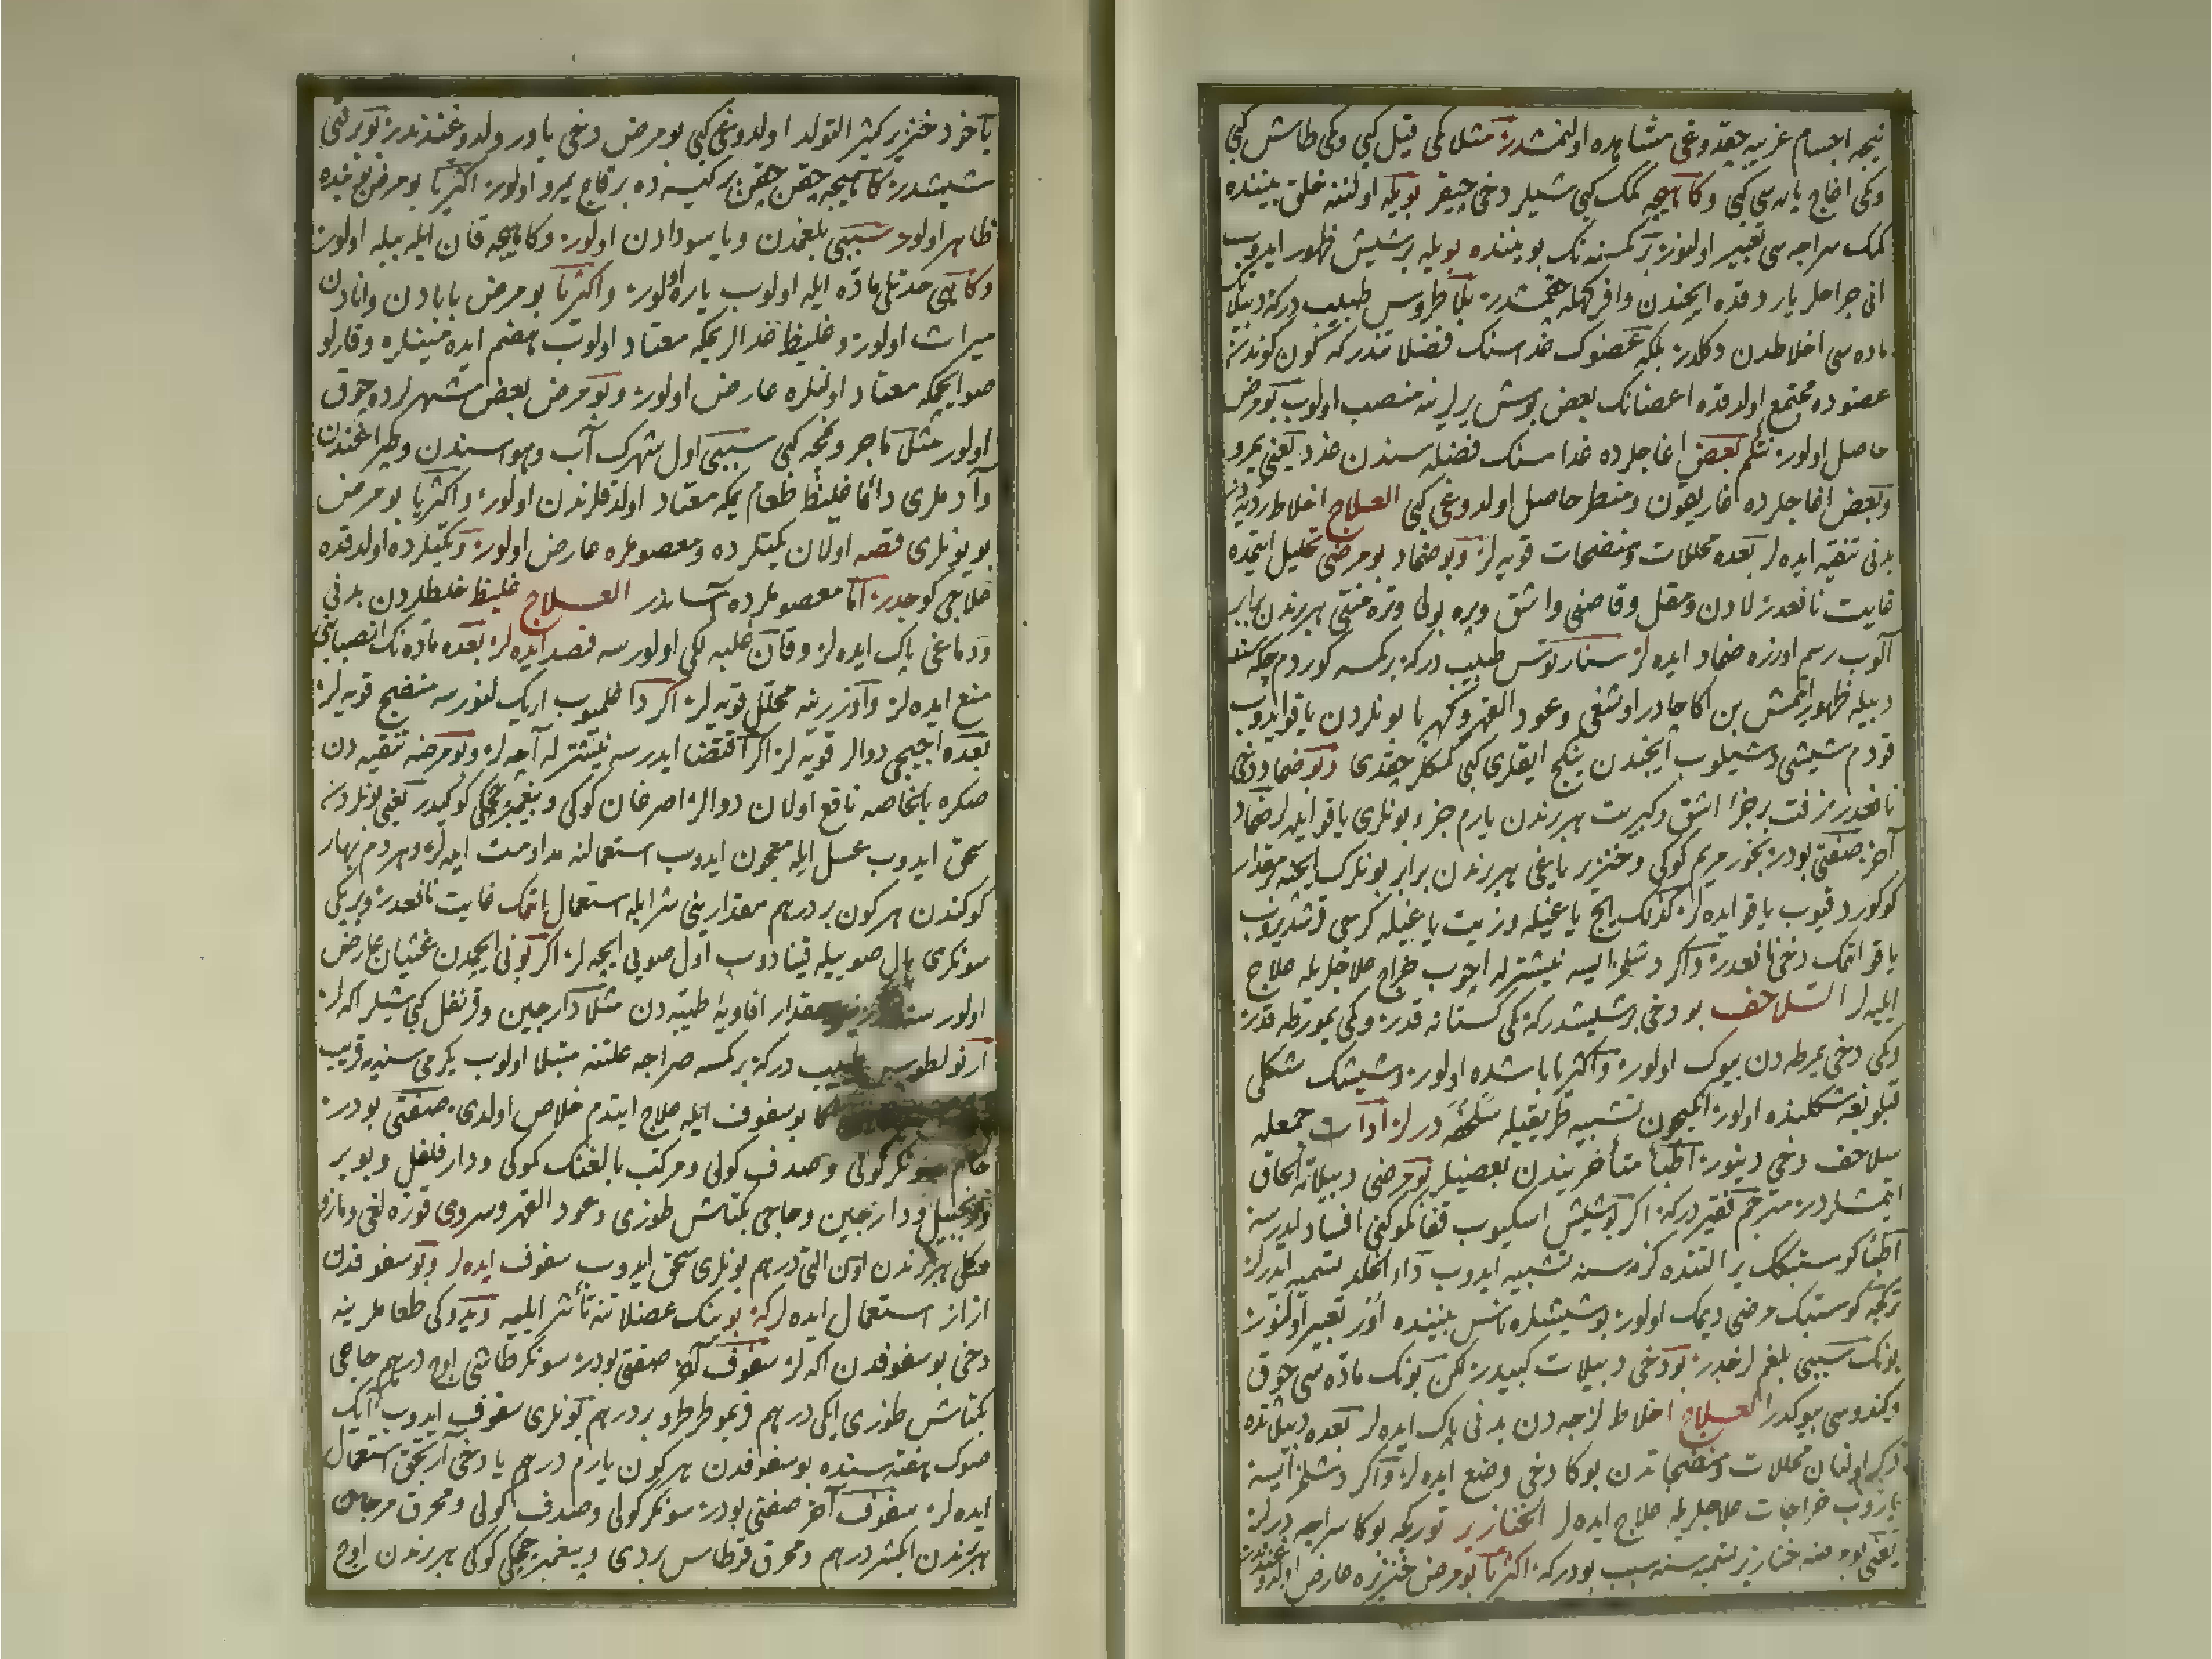 نیجه اجسام غریبه چقدوغی مشاهده اولنمشدر مثلا کمی قیل کبی و کمی طاش کبی
و کمی اغاج پاره سی کبی و کاهیجه کمک کبی شیلر دخی چیقر بویله اولننه خلق بیننده
کمک سراجه سی تعبیر اولنور بر کمسنه نک بویننده بویله بر شیش ظهور ایدوب
انی جراحلر یاردقده ایچندن وافر کهله چقمشدر طبیب درکه دبیله نک
ماده سی اخلاطدن دکلدر بلکه عضوک غداسنک فضلاتندر که کون کوندن
عضوده مجتمع اولدقده اعضانک بعض بوش یرلرینه منصب اولوب بو مرض
حاصل اولور نتکیم بعض اغاجلرده غداسنک فضله سندن غدد یعنی یمرو
و بعض اغاجلرده غاریقون و منطر حاصل اولدوغی کبی العلاج اخلاط ردیه دن
بدنی تنقیه ایده لر بعده محللات و منضجات قویه لر و بو ضماد بو مرضی تحلیل ایتمده
غایت نافعدر لادن و مقل و قاصنی و اشق و یره بولی و تره منتی هر برندن برابر
آلوب رسم اوزره ضماد ایده لر طبیب درکه بر کمسه کوردم چکه سنده
دبیله ظهور ایتمش بن اکا چادر اوشغی و عود القهر و کهربا بونلردن یاقو ایدوب
قودم شیشی دشیلوب ایچندن بنکج ایقلری کبی کمکلر چقدی و بو ضماد دخی
نافعدر زفت بر جزء اشق و کبریت هر برندن یارم جزء بونلری یاقو ایلیه لر ضماد
آخر صفتی بودر بخور مریم کوکی و خنزیر یاغی هر برندن برابر بونلرک ایچنه بر مقدار
کوکورد قیوب یاقو ایده لر کذلک ایچ یاغیله و زیت یاغیله کرسی قرشدیروب
یاقو اتمک دخی نافعدر و اکر دشلمز ایسه نیشترله اچوب خراج علاجلریله علاج
ایلیه لر السلاحف بو دخی بر شیشدر که کمی کستانه قدر و کمی یمورطه قدر
و کمی دخی یمرطه دن بیوک اولور و اکثریا باشده اولور و شیشک شکلی
قبلوبغه شکلنده اولور انکیچون تشبیه طریقیله سلحفه درلر ادات جمعله
سلاحف دخی دینور اطبا متأخریندن بعضیلر بو مرضی دبیلاته الحاق
ایتمشلردر مترجم فقیر درکه اکر بو شیش اسکیوب قفا کمکنی افساد ایدرسه
اطبا کوستبکک یر التنده کزمسنه تشبیه ایدوب داء الخلد تسمیه ایدرلر
ترکجه کوستبک مرضی دیمک اولور بو شیشلره ناس بیننده اور تعبیر اولنور
بونک سببی بلغم لزجدر بو دخی دبیلات کبیدر لکن بونک ماده سی چوق
و کندوسی بیوکدر العلاج اخلاط لزجه دن بدنی پاک ایده لر بعده دبیلاتده
ذکر اولنان محللات و منضجاتدن بوکا دخی وضع ایده لر و اکر دشلمز ایسه
یاروب خراجات علاجلریله علاج ایده لر الخنازیر تورکجه بوکا سراجه درلر
یعنی بو مرضه خنازیر تسمیه سنه سبب بودر که اکثریا بو مرض خنزیره عارض اولدوغندندر
یاخود خنزیر کثیر التولد اولدوغی کبی بو مرض دخی یاورولدوغندندر بو بر قتی
شیشدر کاهیجه چقن چقن بر کیسه ده بر قاچ یمرو اولور اکثریا بو مرض بویننده
ظاهر اولور سببی بلغمدن و یا سودادن اولور و کاهیجه قان ایله بیله اولور
و کاهی حدتلی ماده ایله اولوب یاره اولور و اکثریا بو مرض بابادن و انادن
میراث اولور و غلیظ غدالر یمکه معتاد اولوب هضم ایده مینلره و قارلو
صو ایچمکه معتاد اولنلره عارض اولور و بو مرض بعض شهرلرده چوق
اولور مثلا ماجر و نمچه کبی سببی اول شهرک آب و هواسندن و طپراغندن
و آدملری دائما غلیظ طعام یمکه معتاد اولدقلرندن اولور و اکثریا بو مرض
بویونلری قصه اولان یکتلرده و معصوملره عارض اولور و یکتیلرده اولدقده
علاجی کوجدر اما معصوملرده آساندر العلاج غلیظ خلطلردن بدنی
و دماغی پاک ایده لر و قان غلبه لکی اولورسه فصد ایده لر بعده ماده نک انصبابنی
منع ایده لر و اوزرینه محلل قویه لر اکر داغلمیوب اریک لنورسه منضج قویه لر
بعده اچیجی دوالر قویه لر اکر اقتضا ایدرسه نیشترله آچه لر و بو مرضه تنقیه دن
صکره بالخاصه نافع اولان دوالر اصرغان کوکی و پیغمبر چچکی کوکیدر یعنی بونلردن
سحق ایدوب عسل ایله معجون ایدوب استعمالنه مداومت ایده لر و هر دم بهار
کوکندن هر کون بر درهم مقدارینی شرابله استعمال اتمک غایت نافعدر و بر یکی
سونکری بال صوییله قینادوب اول صویی ایچه لر اکر بونی ایچمدن غثیان عارض
اولورسه مقدار افاویه طیبه دن مثلا دارچین و قرنفل کبی شیلر اکه لر
طبیب درکه بر کمسه صراجه علتنه مبتلا اولوب یکرمی سنه یه قریب
بو سفوف ایله علاج ایتدم خلاص اولدی صفتی بودر
سونکر کولی و صدف کولی و مرکب بالغنک کموکی و دار فلفل و بوبر
و زنجبیل و دارچین و حاجی بکتاش طوزی و عود القهر و سروی قوزه لغی و مازو
هر برندن اون التی درهم بونلری سحق ایدوب سفوف ایده لر و بو سفوفدن
ازار استعمال ایده لر که بوینک عضلاتنه تأثیر ایلیه و یدوکی طعاملرینه
دخی بو سفوفدن اکه لر سفوف آخر صفتی بودر سونکر طاشی اوچ درهم حاجی
بکتاش طوزی ایکی درهم و یمو طرطرو بر درهم بونلری سفوف ایدوب آیک
صوک هفته سنده بو سفوفدن هر کون یارم درهم یا دخی آرتجق استعمال
ایده لر سفوف آخر صفتی بودر سونکر کولی و صدف کولی و محرق مرجان
هر برندن ایکیشر درهم و محرق قرطاس بردی و پیغمبر چچکی کوکی هر برندن اوچ